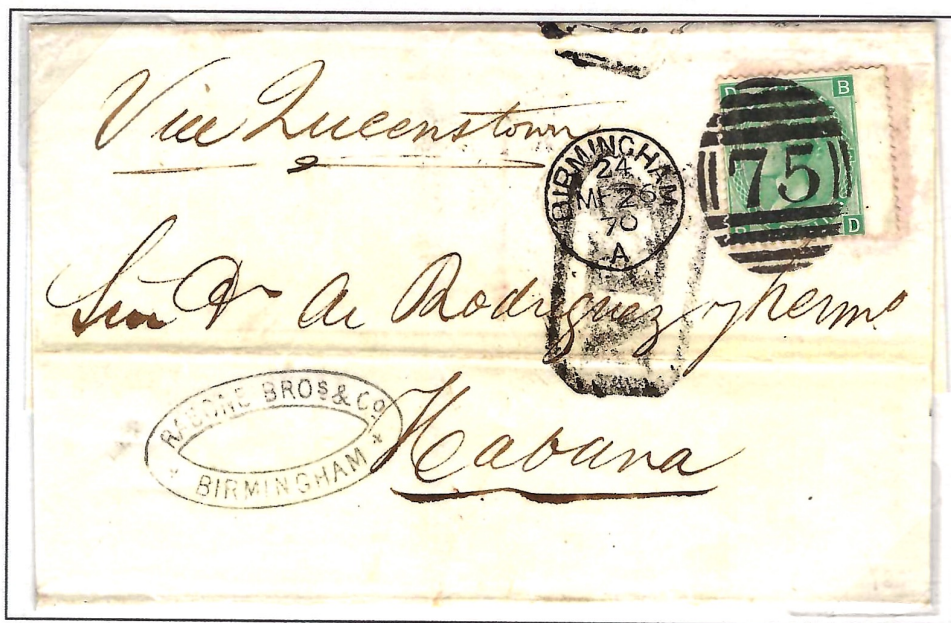 Via Queenstown
BIRMINGHAM
24
MR 26
70
A
75
D B
D
de Rodriguez y herm°
RABONE BROS & Co
BIRMINGHAM
Habana